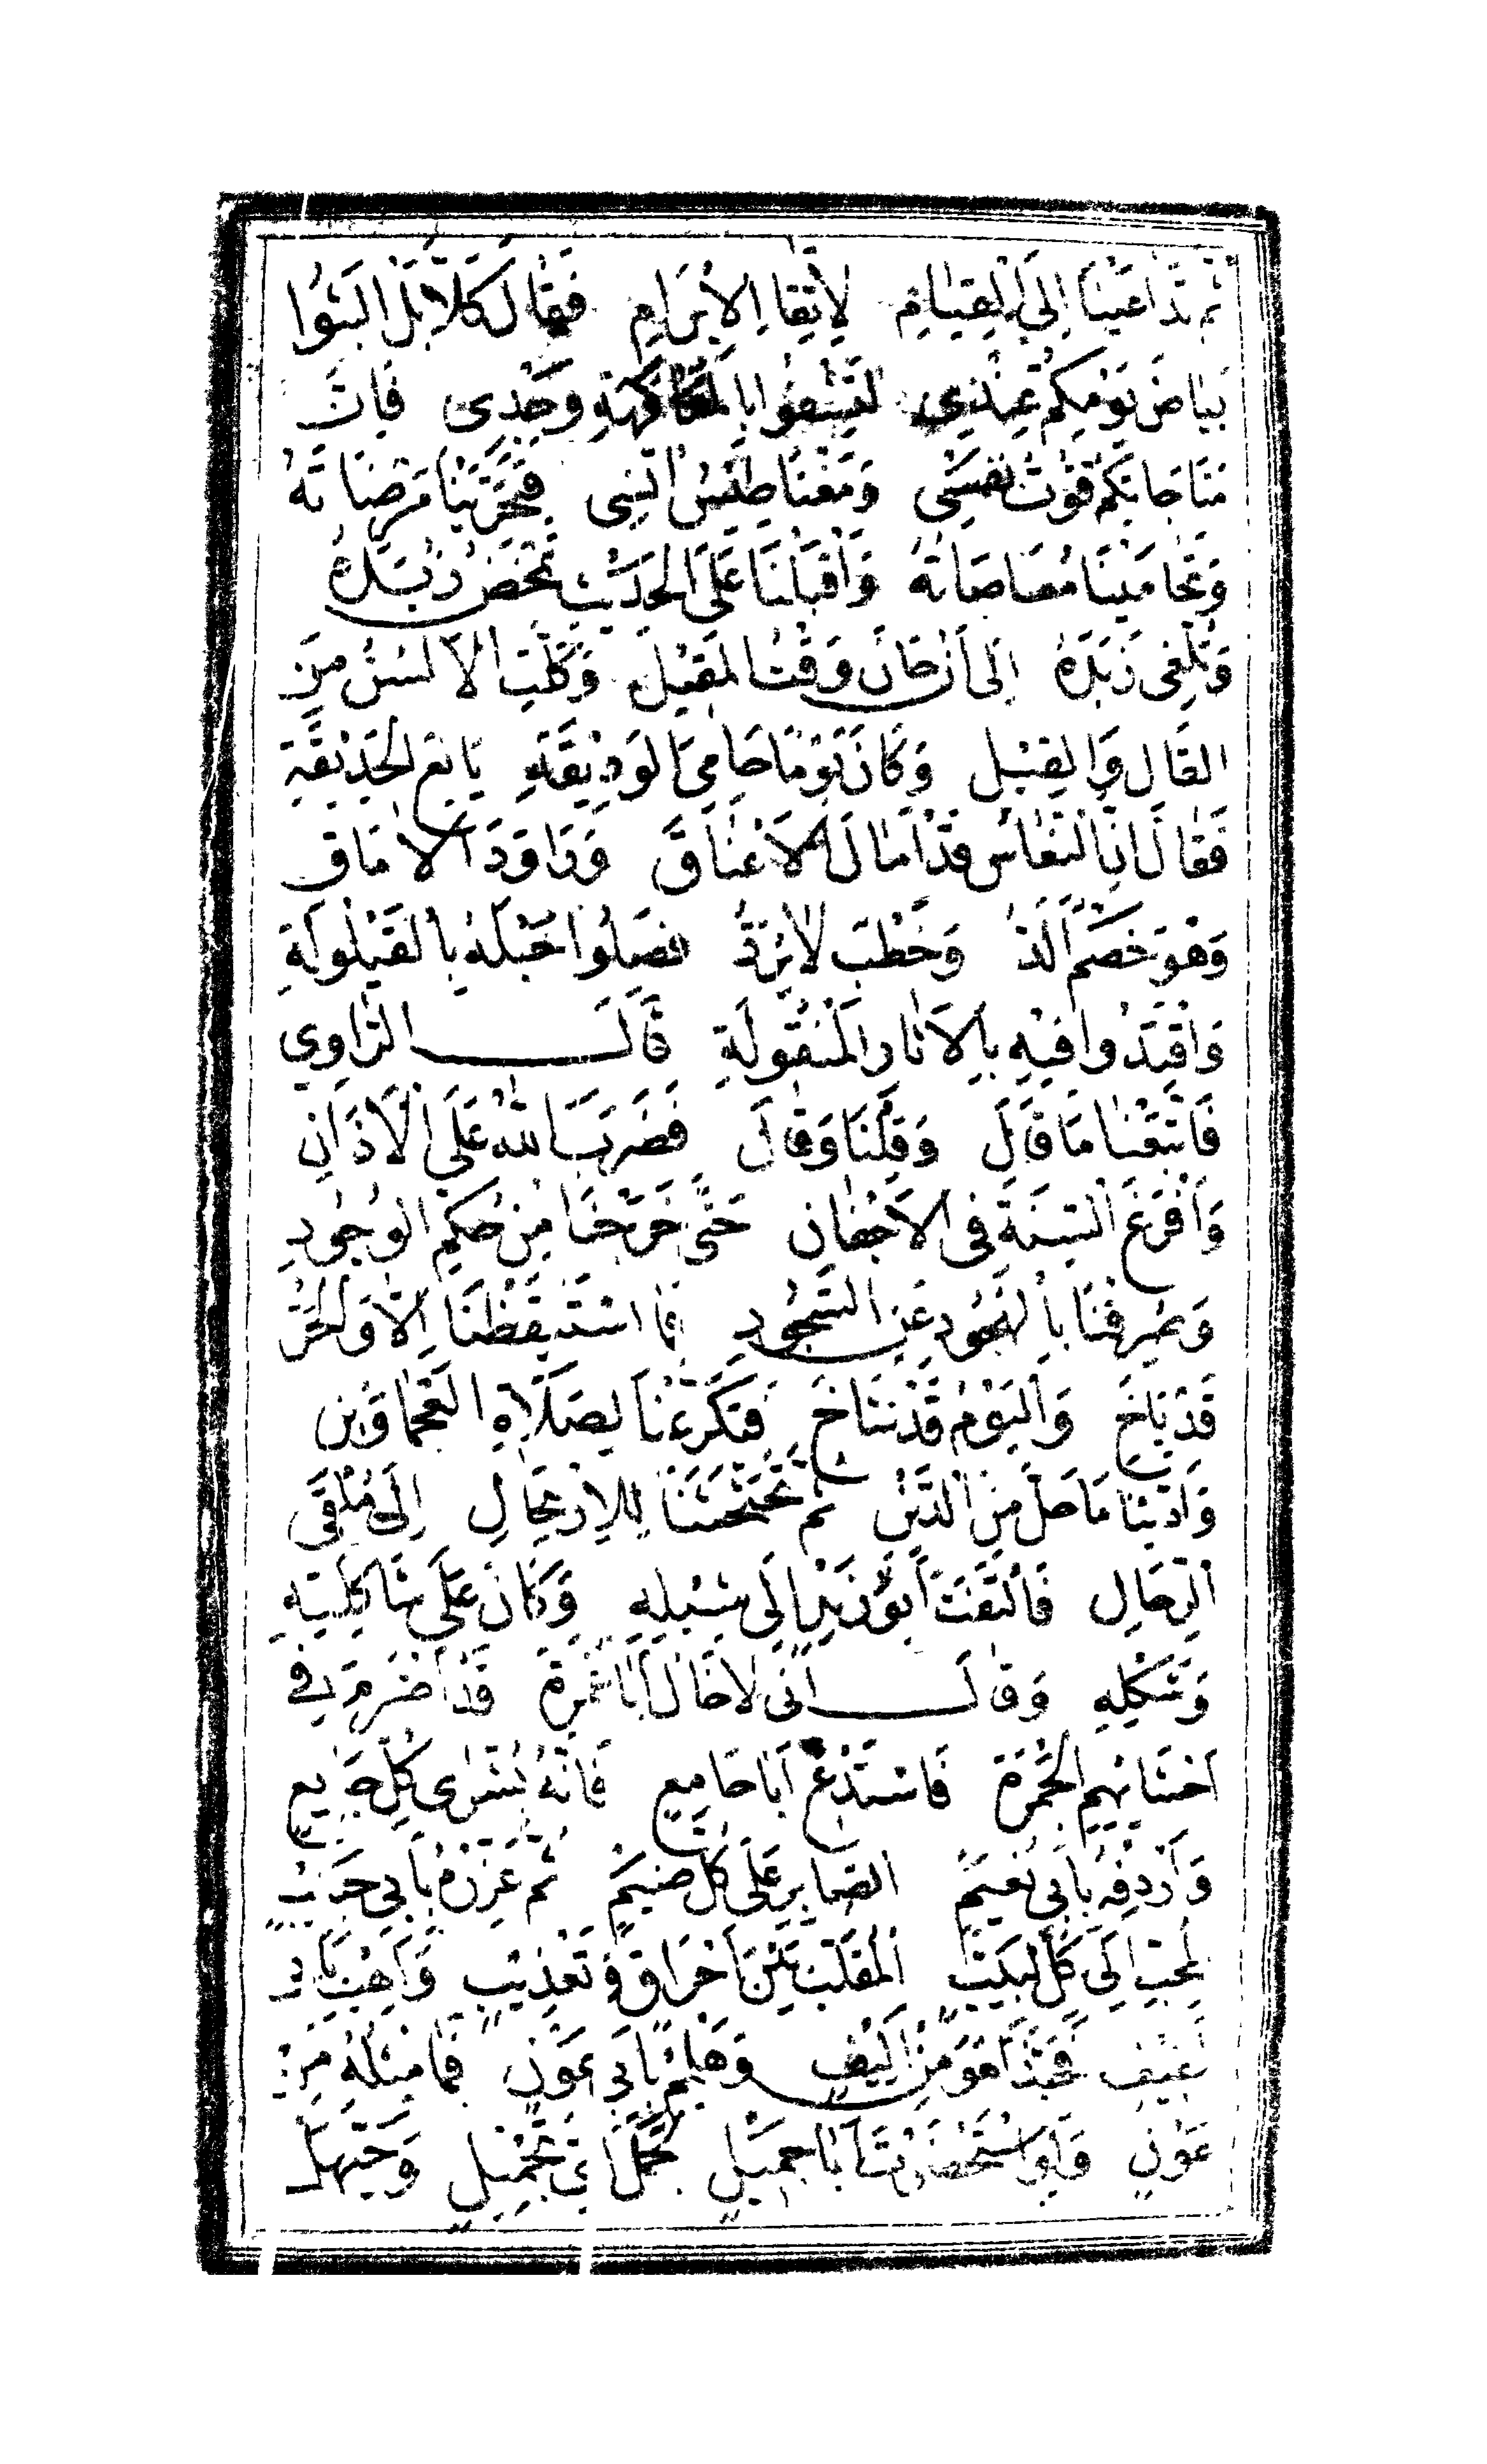 ثُمَّ تَدَاعَيْنَا اِلَى الْقِيَامِ لِاتِّقَاءِ الْاِبْرَامِ فَقَالَ كَلَّا بَلِ الْبَثُوا
بَيَاضَ يَوْمِكُمْ عِنْدِى لِتَشْفُوا بِالْمُفَاكَهَةِ وَجْدِى فَاِنَّ
مُنَاجَاتَكُمْ قُوْتُ نَفْسِى وَمَغْنَاطِيْسُ اُنْسِى فَتَحَرَّيْنَا مَرْضَاتَهُ
وَتَحَامَيْنَا مُعَاصَاتَهُ وَاَقْبَلْنَا عَلَى الْحَدِيْثِ نَمْخَضُ زُبَدَهُ
وَنُلْغِى زَبَدَهُ اِلَى اَنْ حَانَ وَقْتُ الْمَقِيْلِ وَكَلَّتِ الْاَلْسُنُ مِنَ
الْقَالِ وَالْقِيْلِ وَكَانَ يَوْمًا حَامِىَ الْوَدِيْقَةِ يَانِعَ الْحَدِيْقَةِ
فَقَالَ اِنَّ النُّعَاسَ قَدْ اَمَالَ الْاَعْنَاقَ وَرَاوَدَ الْاٰمَاقَ
وَهُوَ خَصْمٌ اَلَدُّ وَخَطْبٌ لَا يُرَدُّ فَصِلُوا حَبْلَهُ بِالْقَيْلُوْلَةِ
وَاقْتَدُوا فِيْهِ بِالْاٰثَارِ الْمَنْقُوْلَةِ قَالَ الرَّاوِي
فَاتَّبَعْنَا مَا قَالَ وَقِلْنَا وَقَالَ فَضَرَبَ اللّٰهُ عَلَى الْاٰذَانِ
وَاَفْرَغَ السِّنَةَ فِى الْاَجْفَانِ حَتَّى خَرَجْنَا مِنْ حُكْمِ الْوُجُوْدِ
وَصُرِفْنَا بِالْهُجُوْدِ عَنِ السُّجُوْدِ فَمَا اسْتَيْقَظْنَا اِلَّا وَالْحَرُّ
قَدْ بَاخَ وَالْيَوْمُ قَدْ شَاخَ فَتَكَرَّعْنَا لِصَلَاةِ الْعَجْمَاوَيْنِ
وَاَدَّيْنَا مَا حَلَّ مِنَ الدَّيْنِ ثُمَّ تَحَثْحَثْنَا لِلْاِرْتِحَالِ اِلَى مُلْقَى
الرِّحَالِ فَالْتَفَتَ اَبُوْ زَيْدٍ اِلَى شِبْلِهِ وَكَانَ عَلَى شَاكِلَتِهِ
وَشَكْلِهِ وَقَالَ اِنِّى لَاَخَالُ اَبَا عَمْرَةَ قَدْ اَضْرَمَ فِي
اَحْشَائِهِمُ الْجَمْرَةَ فَاسْتَدْعِ اَبَا جَامِعٍ فَاِنَّهُ بُشْرَى كُلِّ جَائِعٍ
وَاَرْدِفْهُ بِاَبِي نُعَيْمٍ الصَّابِرِ عَلَى كُلِّ ضَيْمٍ ثُمَّ عَزِّزْهُ بِاَبِي حَبِيْبٍ
الْمُحَبَّبِ اِلَى كُلِّ لَبِيْبٍ الْمُقَلَّبِ بَيْنَ اِحْرَاقٍ وَتَعْذِيْبٍ وَاَهِّبْ بِاَبِي
ثَقِيْفٍ فَحَبَّذَا هُوَ مِنْ اَلِيْفٍ وَهَلْمُمْ بِاَبِى عَوْنٍ فَمَا مِثْلُهُ مِنْ
عَوْنٍ وَلَوِ اسْتَحْضَرْتَ اَبَا جَمِيْلٍ لَجَمَّلَ اَىَّ تَجْمِيْلٍ وَحَيَّهَلْ